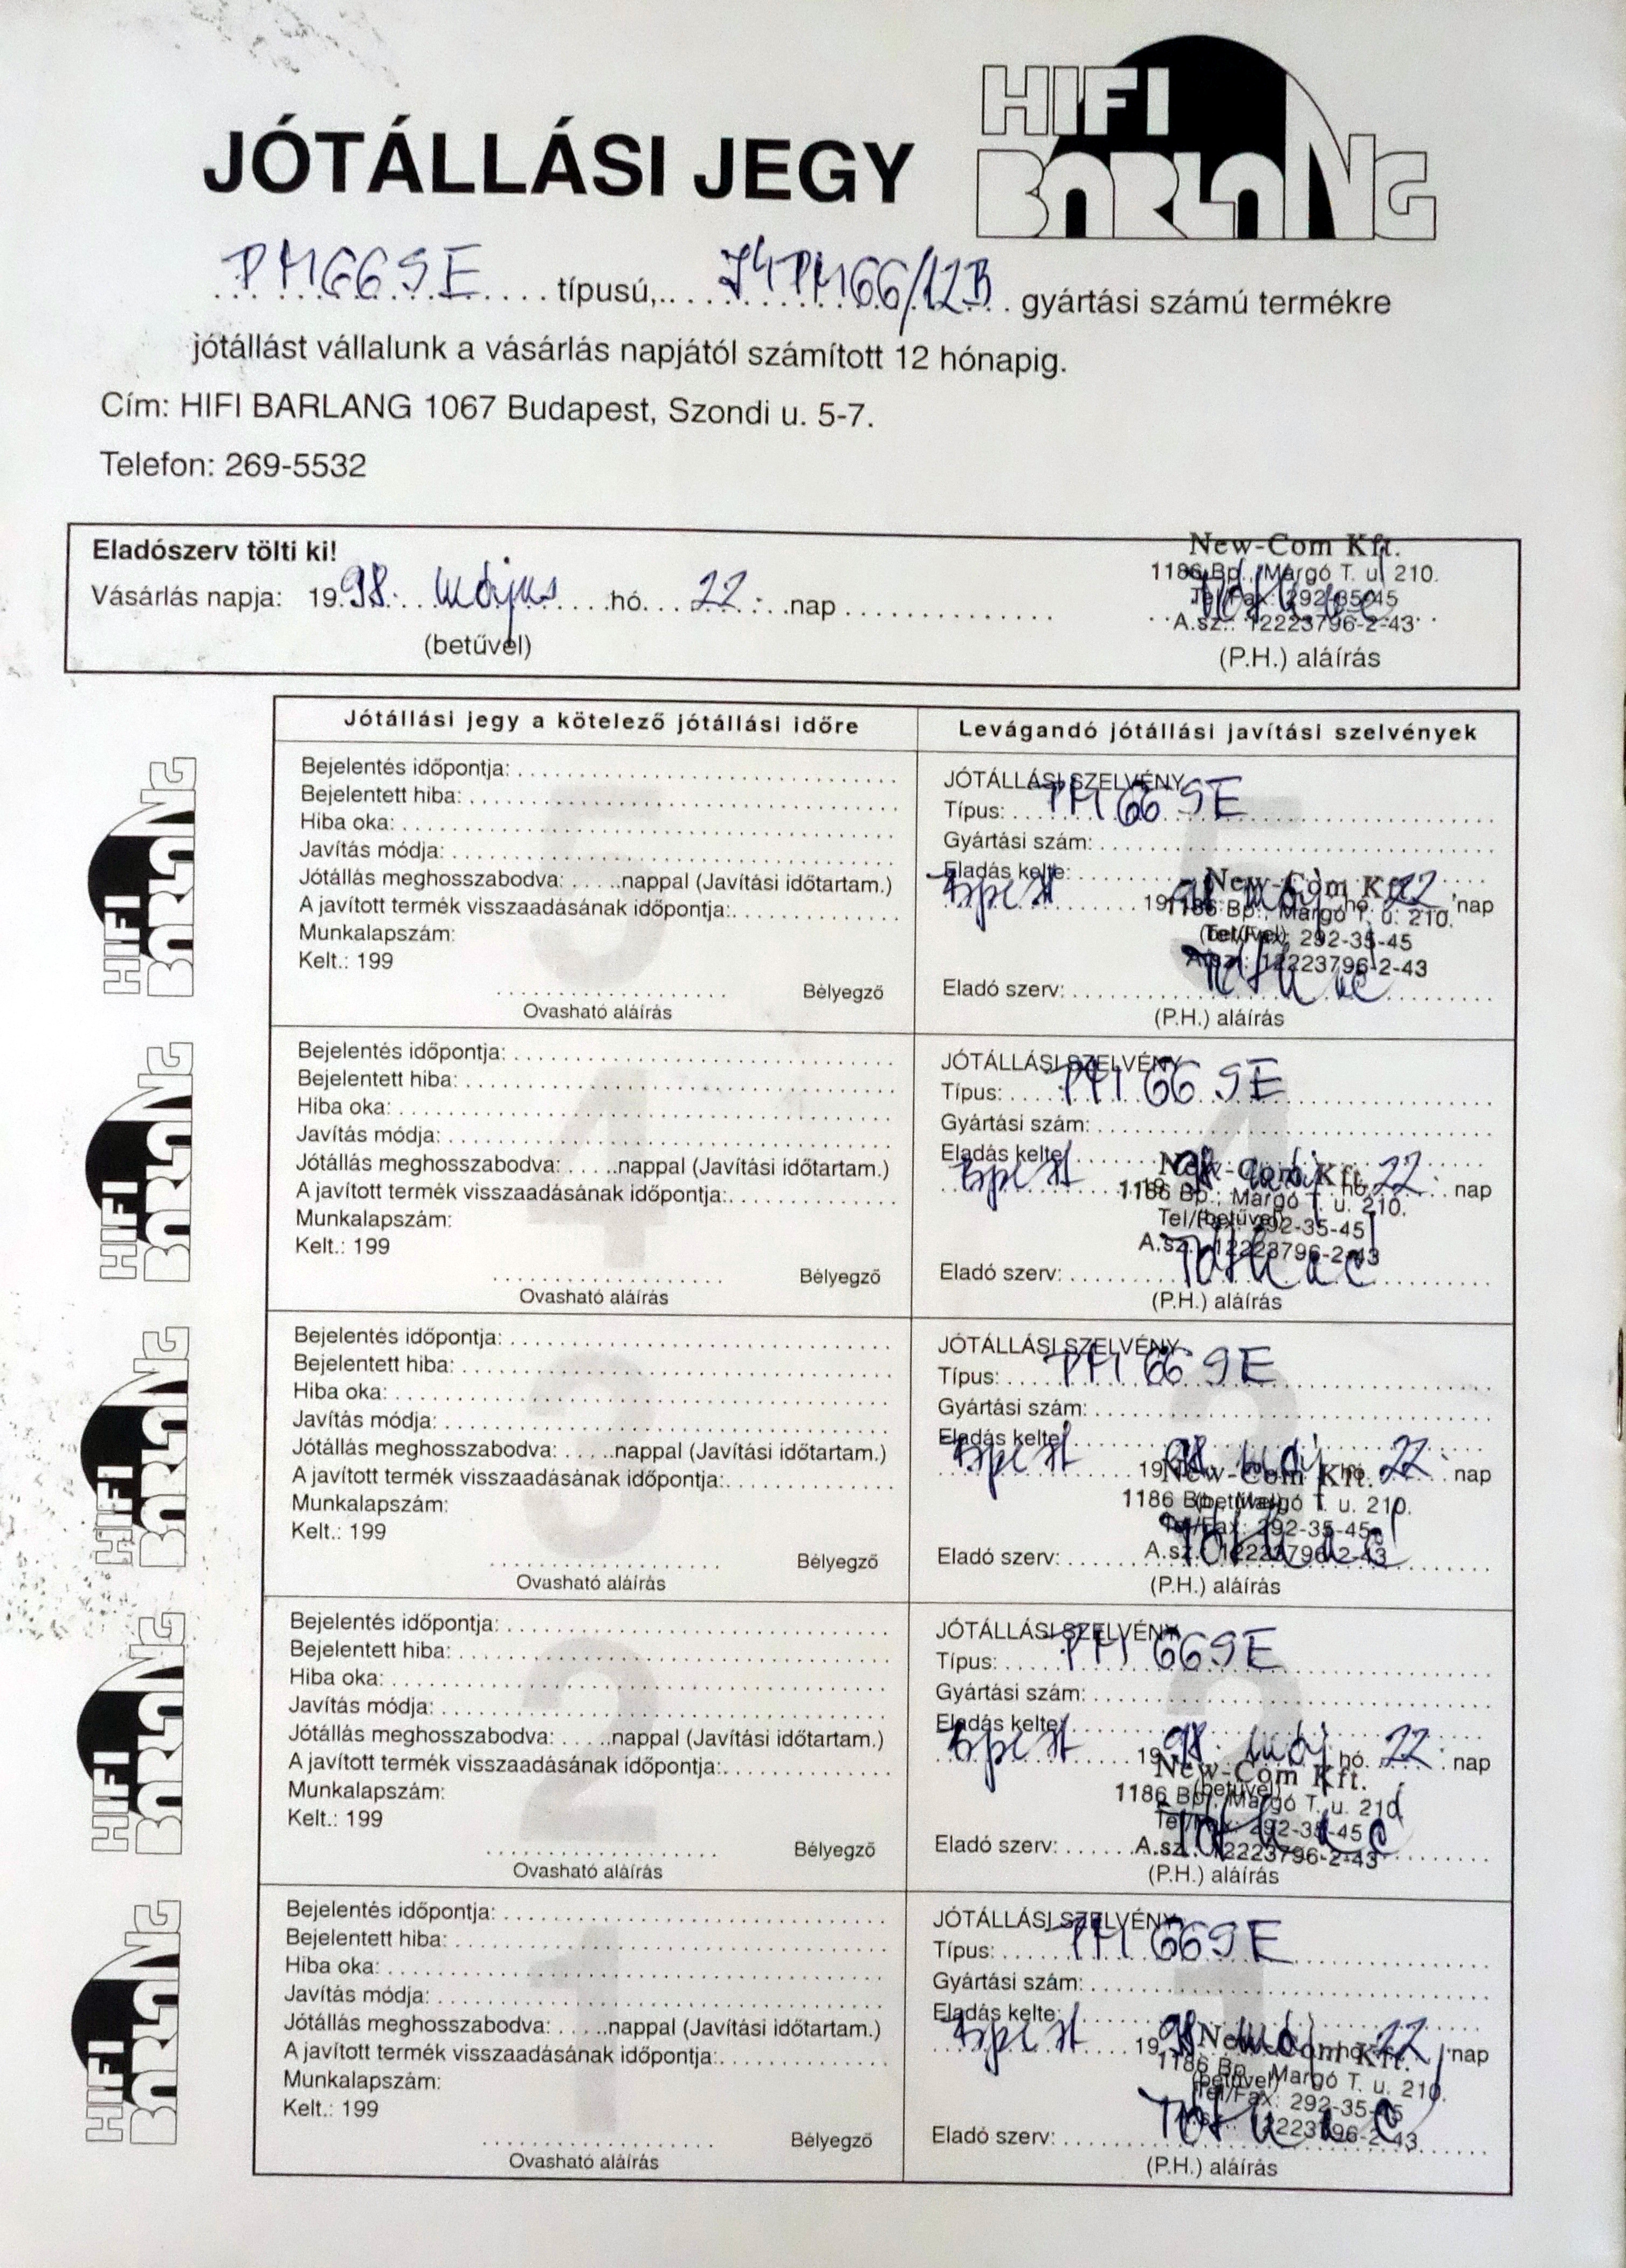 HIFI
BARLANG
JÓTÁLLÁSI JEGY
PM66SE típusú, 74PM66/12B gyártási számú termékre
jótállást vállalunk a vásárlás napjától számított 12 hónapig.
Cím: HIFI BARLANG 1067 Budapest, Szondi u. 5-7.
Telefon: 269-5532
Eladószerv tölti ki!
Vásárlás napja: 1998. május hó 22. nap
(betűvel)
New-Com Kft.
1186 Bp., Margó T. u. 210.
Tel/Fax: 292-35-45
A.sz.: 12223796-2-43
(P.H.) aláírás
Jótállási jegy a kötelező jótállási időre
Levágandó jótállási javítási szelvények
HIFI
BARLANG
5
Bejelentés időpontja:
Bejelentett hiba:
Hiba oka:
Javítás módja:
Jótállás meghosszabodva: nappal (Javítási időtartam.)
A javított termék visszaadásának időpontja:
Munkalapszám:
Kelt.: 199
Bélyegző
Ovasható aláírás
5
JÓTÁLLÁSI SZELVÉNY
Típus: PM66SE
Gyártási szám:
Eladás kelte:
Bpest 1998 máj hó 22 nap
(betűvel)
New-Com Kft.
1186 Bp., Margó T. u. 210.
Tel/Fax: 292-35-45
A.sz.: 12223796-2-43
Eladó szerv:
(P.H.) aláírás
HIFI
BARLANG
4
Bejelentés időpontja:
Bejelentett hiba:
Hiba oka:
Javítás módja:
Jótállás meghosszabodva: nappal (Javítási időtartam.)
A javított termék visszaadásának időpontja:
Munkalapszám:
Kelt.: 199
Bélyegző
Ovasható aláírás
4
JÓTÁLLÁSI SZELVÉNY
Típus: PM66SE
Gyártási szám:
Eladás kelte:
Bpest 1998 máj hó 22. nap
(betűvel)
New-Com Kft.
1186 Bp., Margó T. u. 210.
Tel/Fax: 292-35-45
A.sz.: 12223796-2-43
Eladó szerv:
(P.H.) aláírás
HIFI
BARLANG
3
Bejelentés időpontja:
Bejelentett hiba:
Hiba oka:
Javítás módja:
Jótállás meghosszabodva: nappal (Javítási időtartam.)
A javított termék visszaadásának időpontja:
Munkalapszám:
Kelt.: 199
Bélyegző
Ovasható aláírás
3
JÓTÁLLÁSI SZELVÉNY
Típus: PM66SE
Gyártási szám:
Eladás kelte:
Bpest 1998 máj hó 22. nap
(betűvel)
New-Com Kft.
1186 Bp., Margó T. u. 210.
Tel/Fax: 292-35-45
A.sz.: 12223796-2-43
Eladó szerv:
(P.H.) aláírás
HIFI
BARLANG
2
Bejelentés időpontja:
Bejelentett hiba:
Hiba oka:
Javítás módja:
Jótállás meghosszabodva: nappal (Javítási időtartam.)
A javított termék visszaadásának időpontja:
Munkalapszám:
Kelt.: 199
Bélyegző
Ovasható aláírás
2
JÓTÁLLÁSI SZELVÉNY
Típus: PM66SE
Gyártási szám:
Eladás kelte:
Bpest 1998. máj hó 22. nap
(betűvel)
New-Com Kft.
1186 Bp., Margó T. u. 210.
Tel/Fax: 292-35-45
A.sz.: 12223796-2-43
Eladó szerv:
(P.H.) aláírás
HIFI
BARLANG
1
Bejelentés időpontja:
Bejelentett hiba:
Hiba oka:
Javítás módja:
Jótállás meghosszabodva: nappal (Javítási időtartam.)
A javított termék visszaadásának időpontja:
Munkalapszám:
Kelt.: 199
Bélyegző
Ovasható aláírás
1
JÓTÁLLÁSI SZELVÉNY
Típus: PM66SE
Gyártási szám:
Eladás kelte:
Bpest 1998. máj hó 22 nap
(betűvel)
New-Com Kft.
1186 Bp., Margó T. u. 210.
Tel/Fax: 292-35-45
A.sz.: 12223796-2-43
Eladó szerv:
(P.H.) aláírás